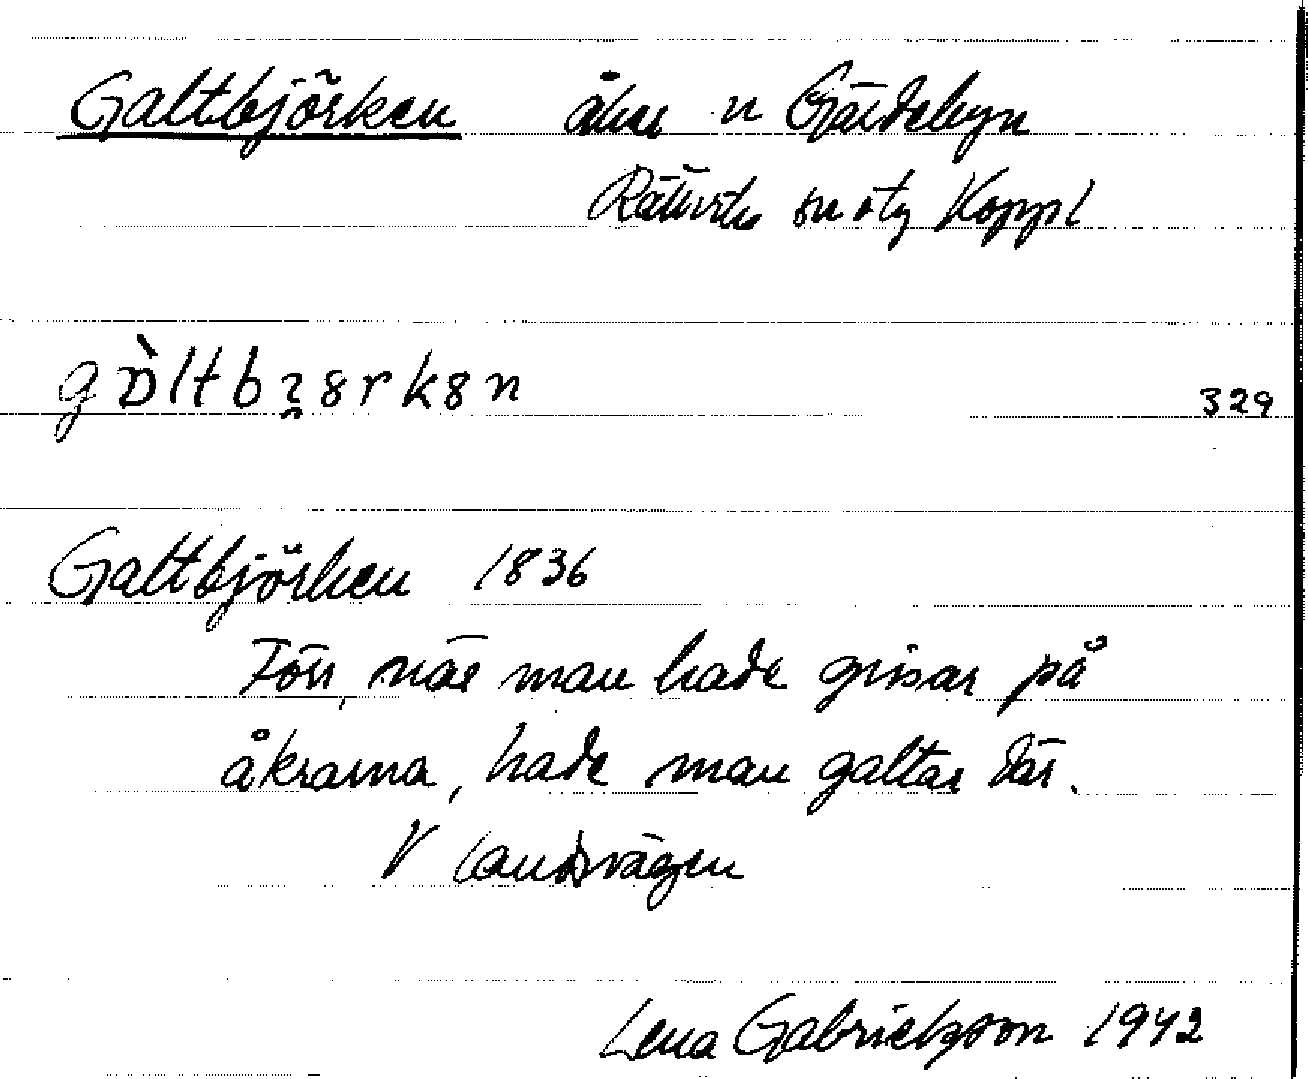 Galtbjörken åker n Gärdebyn
Rättviks sn o tg Koppl
gɒ̀ltbʒ8rk8n
329
Galtbjörken 1836
Förr, när man hade grisar på
åkrarna, hade man galtar där.
V landsvägen
Lena Gabrielsson 1942